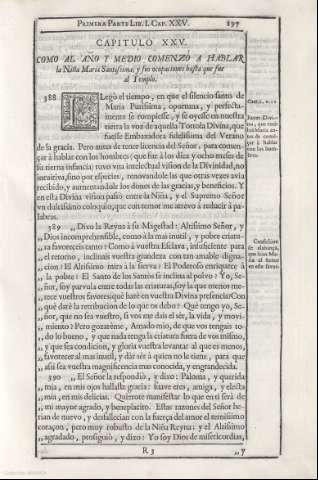 PRIMERA PARTE LIB. I. CAP. XXV. 197
CAPITULO XXV.
COMO AL AÑO Y MEDIO COMENZO A HABLAR
la Niña Maria Santissima, y sus ocupaciones hasta que fue
al Templo.
388 LLegò el tiempo, en que el silencio santo de
Maria Purissima, oportuna, y perfecta-
mente se rompiesse, y se oyesse en nuestra
tierra la voz de aquella Tortola Divina, que
fuesse Embaxadora fidelissima del Verano
de la gracia. Pero antes de tener licencia del Señor, para comen-
çar à hablar con los hombres (que fue à los diez y ocho meses de
su tierna infancia) tuvo vna intelectual vision de la Divinidad, no
intuitiva, sino por especies, renovandole las que otras vezes avia
recibido, y aumentandole los dones de las gracias, y beneficios. Y
en esta Divina vision passò entre la Niña, y el Supremo Señor
vn dulcissimo coloquio, que con temor me atrevo à reducir à pa-
labras.
389 ,, Dixo la Reyna à su Magestad: Altissimo Señor, y
,, Dios incomprehensible, como à la mas inutil, y pobre criatu-
,, ra favoreceis tanto? Como à vuestra Esclava, insuficiente para
,, el retorno, inclinais vuestra grandeza con tan amable digna-
,, cion? El Altissimo mira à la sierva? El Poderoso enriquece à
,, la pobre? El Santo de los Santos se inclina al polvo? Yo, Se-
,, ñor, soy parvula entre todas las criaturas, soy la que menos me-
,, rece vuestros favores; què harè en vuestra Divina presencia? Con
,, què darè la retribucion de lo que os debo? Què tengo yo, Se-
,, ñor, que no sea vuestro, si vos me dais el sèr, la vida, y movi-
,, miento? Pero gozarème, Amado mio, de que vos tengais to-
,, do lo bueno, y que nada tenga la criatura fuera de vos mismo,
,, y que sea condicion, y gloria vuestra levantar al que es menos,
,, favorecer al mas inutil, y dàr sèr à quien no le tiene, para que
,, assi sea vuestra magnificencia mas conocida, y engrandecida.
390 ,, El Señor la respondiò, y dixo: Paloma, y querida
,, mia, en mis ojos hallaste gracia: suave eres, amiga, y electa
,, mia, en mis delicias. Quierote manifestar lo que en ti serà de
,, mi mayor agrado, y beneplacito. Estas razones del Señor he-
rian de nuevo, y desfallecian con la fuerça del amor el ternissimo
coraçon, pero muy robusto de la Niña Reyna: y el Altissimo
,, agradado, prosiguiò, y dixo: Yo soy Dios de misericordias,
R 3 ,, y